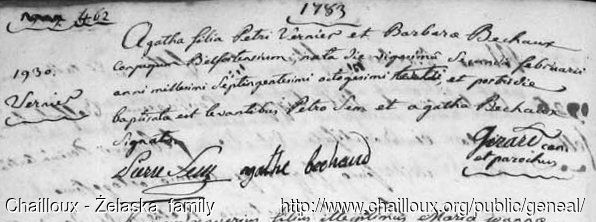 1783
462
Agatha filia Petri Vernier et Barbara Bechaux
conjugum Belfortensium, nata die vigesima secunda februarii
1930. anni millesimi septingentesimi octogesimi tertii, et postridie
Vernier baptisata est levantibus Petro Sem et agatha Bechaux
signatis
Pierre agathe bechaud Gerard can.
et parochus
Chailloux - Żelaska family http://www.chailloux.org/public/geneal/
filius Maria